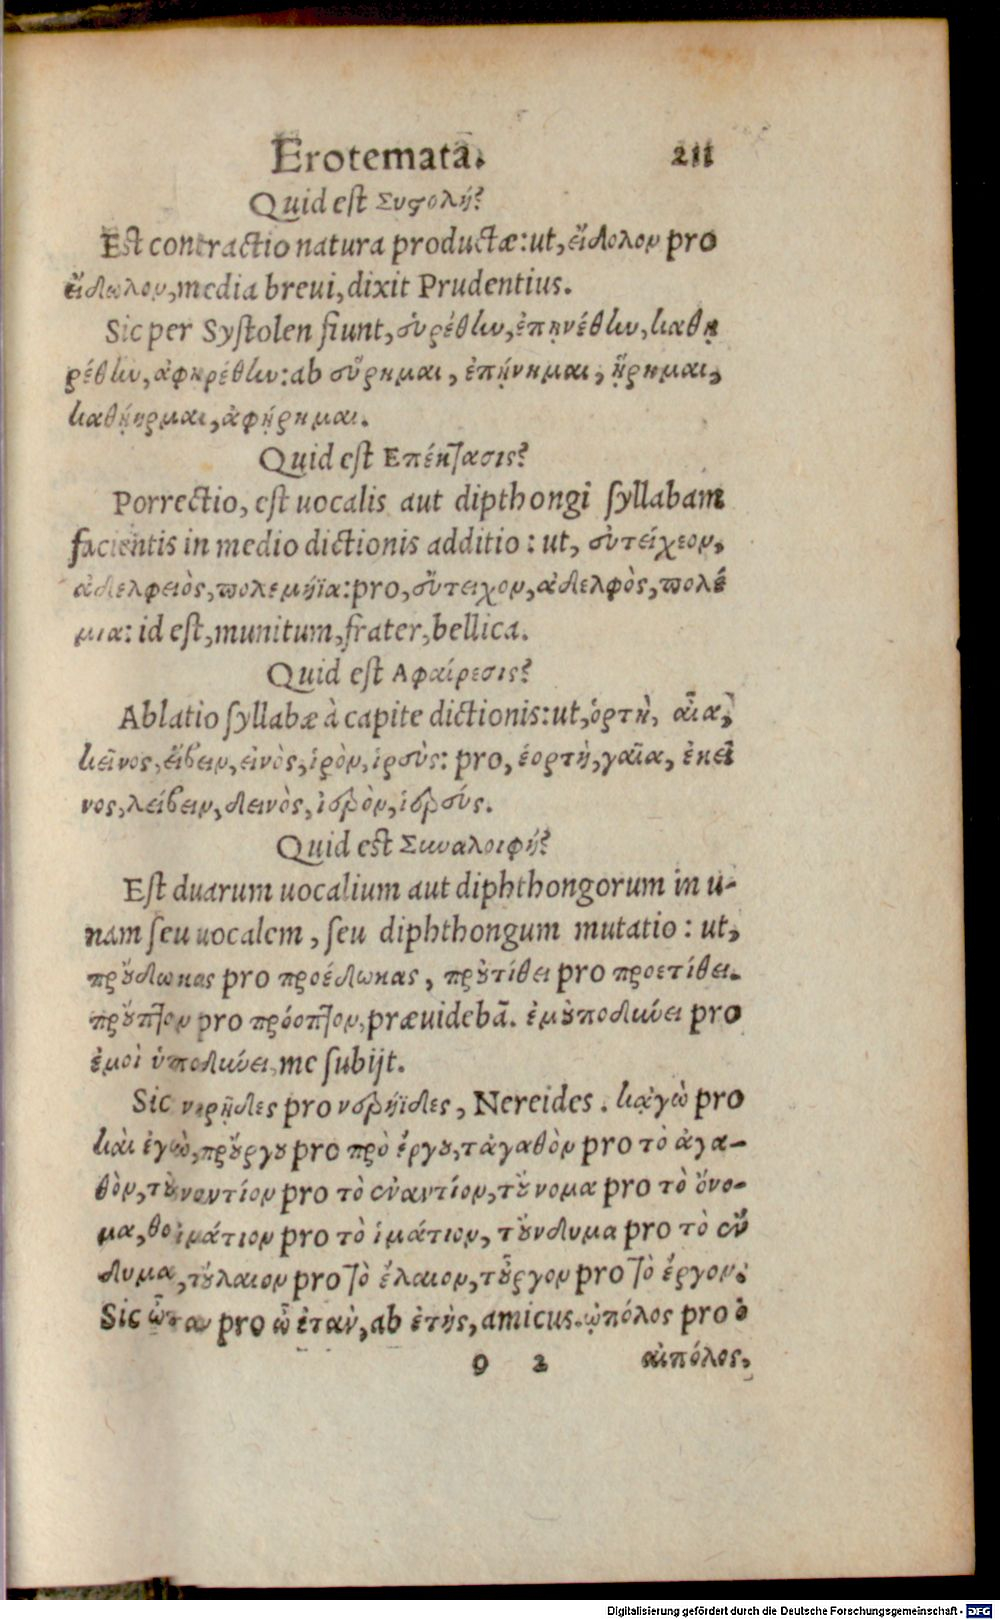 Erotemata. 211
Quid est Συστολή?
Est contractio natura productæ: ut, εἴδολον pro
εἴδωλον, media breui, dixit Prudentius.
Sic per Systolen fiunt, εὑρέθην, ἐπῃνέθην, καθῃ
ρέθην, ἀφῃρέθην: ab εὕρημαι, ἐπῄνημαι, ᾕρημαι,
καθῄηρμαι, ἀφῄρημαι.
Quid est Επέκτασις?
Porrectio, est uocalis aut dipthongi syllabam
facientis in medio dictionis additio: ut, εὐτείχεον,
ἀδελφειὸς, πολεμήϊα: pro, εὔτειχον, ἀδελφὸς, πολέ
μια: id est, munitum, frater, bellica.
Quid est Αφαίρεσις?
Ablatio syllabæ à capite dictionis: ut, ὁρτὴ, αἶα,
κεῖνος, εἴβειν, εἰνὸς, ἱρὸν, ἱρεὺς: pro, ἑορτὴ, γαῖα, ἐκεῖ
νος, λείβειν, δεινὸς, ἱερὸν, ἱερεύς.
Quid est Συναλοιφή?
Est duarum uocalium aut diphthongorum in u-
nam seu uocalem, seu diphthongum mutatio: ut,
προὔδωκας pro προέδωκας, προὐτίθει pro προετίθει.
προὔπτον pro πρόοπτον, præuidebā. ἐμοὐποδύνει pro
ἐμοὶ ὑποδύνει, me subijt.
Sic νηρῇδες pro νερήϊδες, Nereides. κᾀγὼ pro
καὶ ἐγὼ, προὔργου pro πρὸ ἔργου, τἀγαθὸν pro τὸ ἀγα-
θὸν, τοὐναντίον pro τὸ ἐναντίον, τοὔνομα pro τὸ ὄνο-
μα, θοἰμάτιον pro τὸ ἱμάτιον, τοὔνδυμα pro τὸ ἔν
δυμα, τοὔλαιον pro τὸ ἔλαιον, τοὖργον pro τὸ ἔργον:
Sic ὦταν pro ὦ ἐτὰν, ab ἐτὴς, amicus. ᾠπόλος pro ὁ
o 2 αἰπόλος,
Digitalisierung gefördert durch die Deutsche Forschungsgemeinschaft - DFG